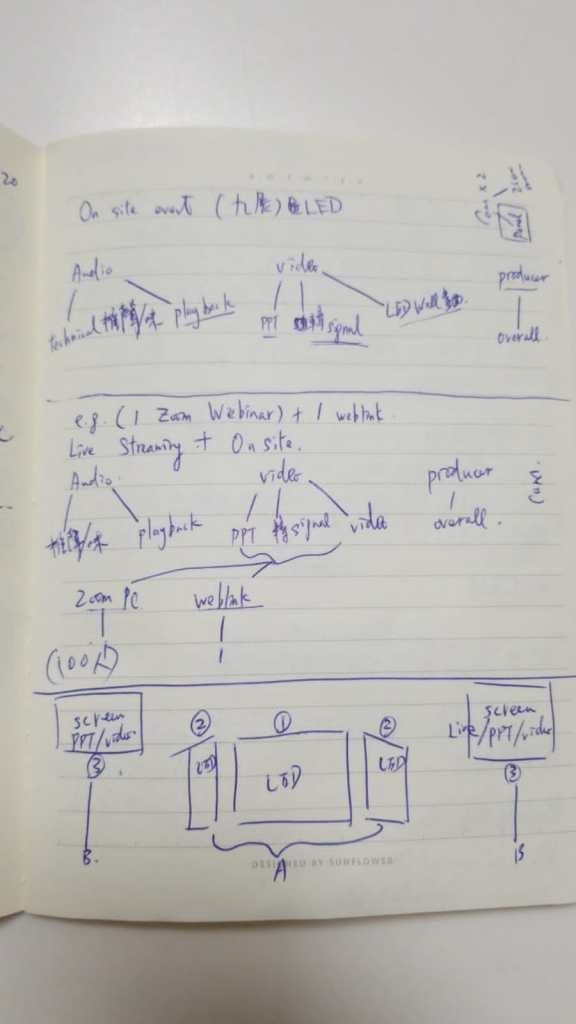 20
On site event (九展) LED
Cam x 2
Panel
Audio video producer
technical 推聲/咪 playback PPT signal LED Wall overall.
e.g. (1 Zoom Webinar) + 1 weblink.
Live Streaming + On site.
Audio video producer
推聲/咪 playback PPT signal video overall.
Zoom PC weblink
(100人) 1
screen ② ① ② screen
PPT/video Live/PPT/video
③ LED LED LED ③
B. A B
DESIGNED BY SUNFLOWER